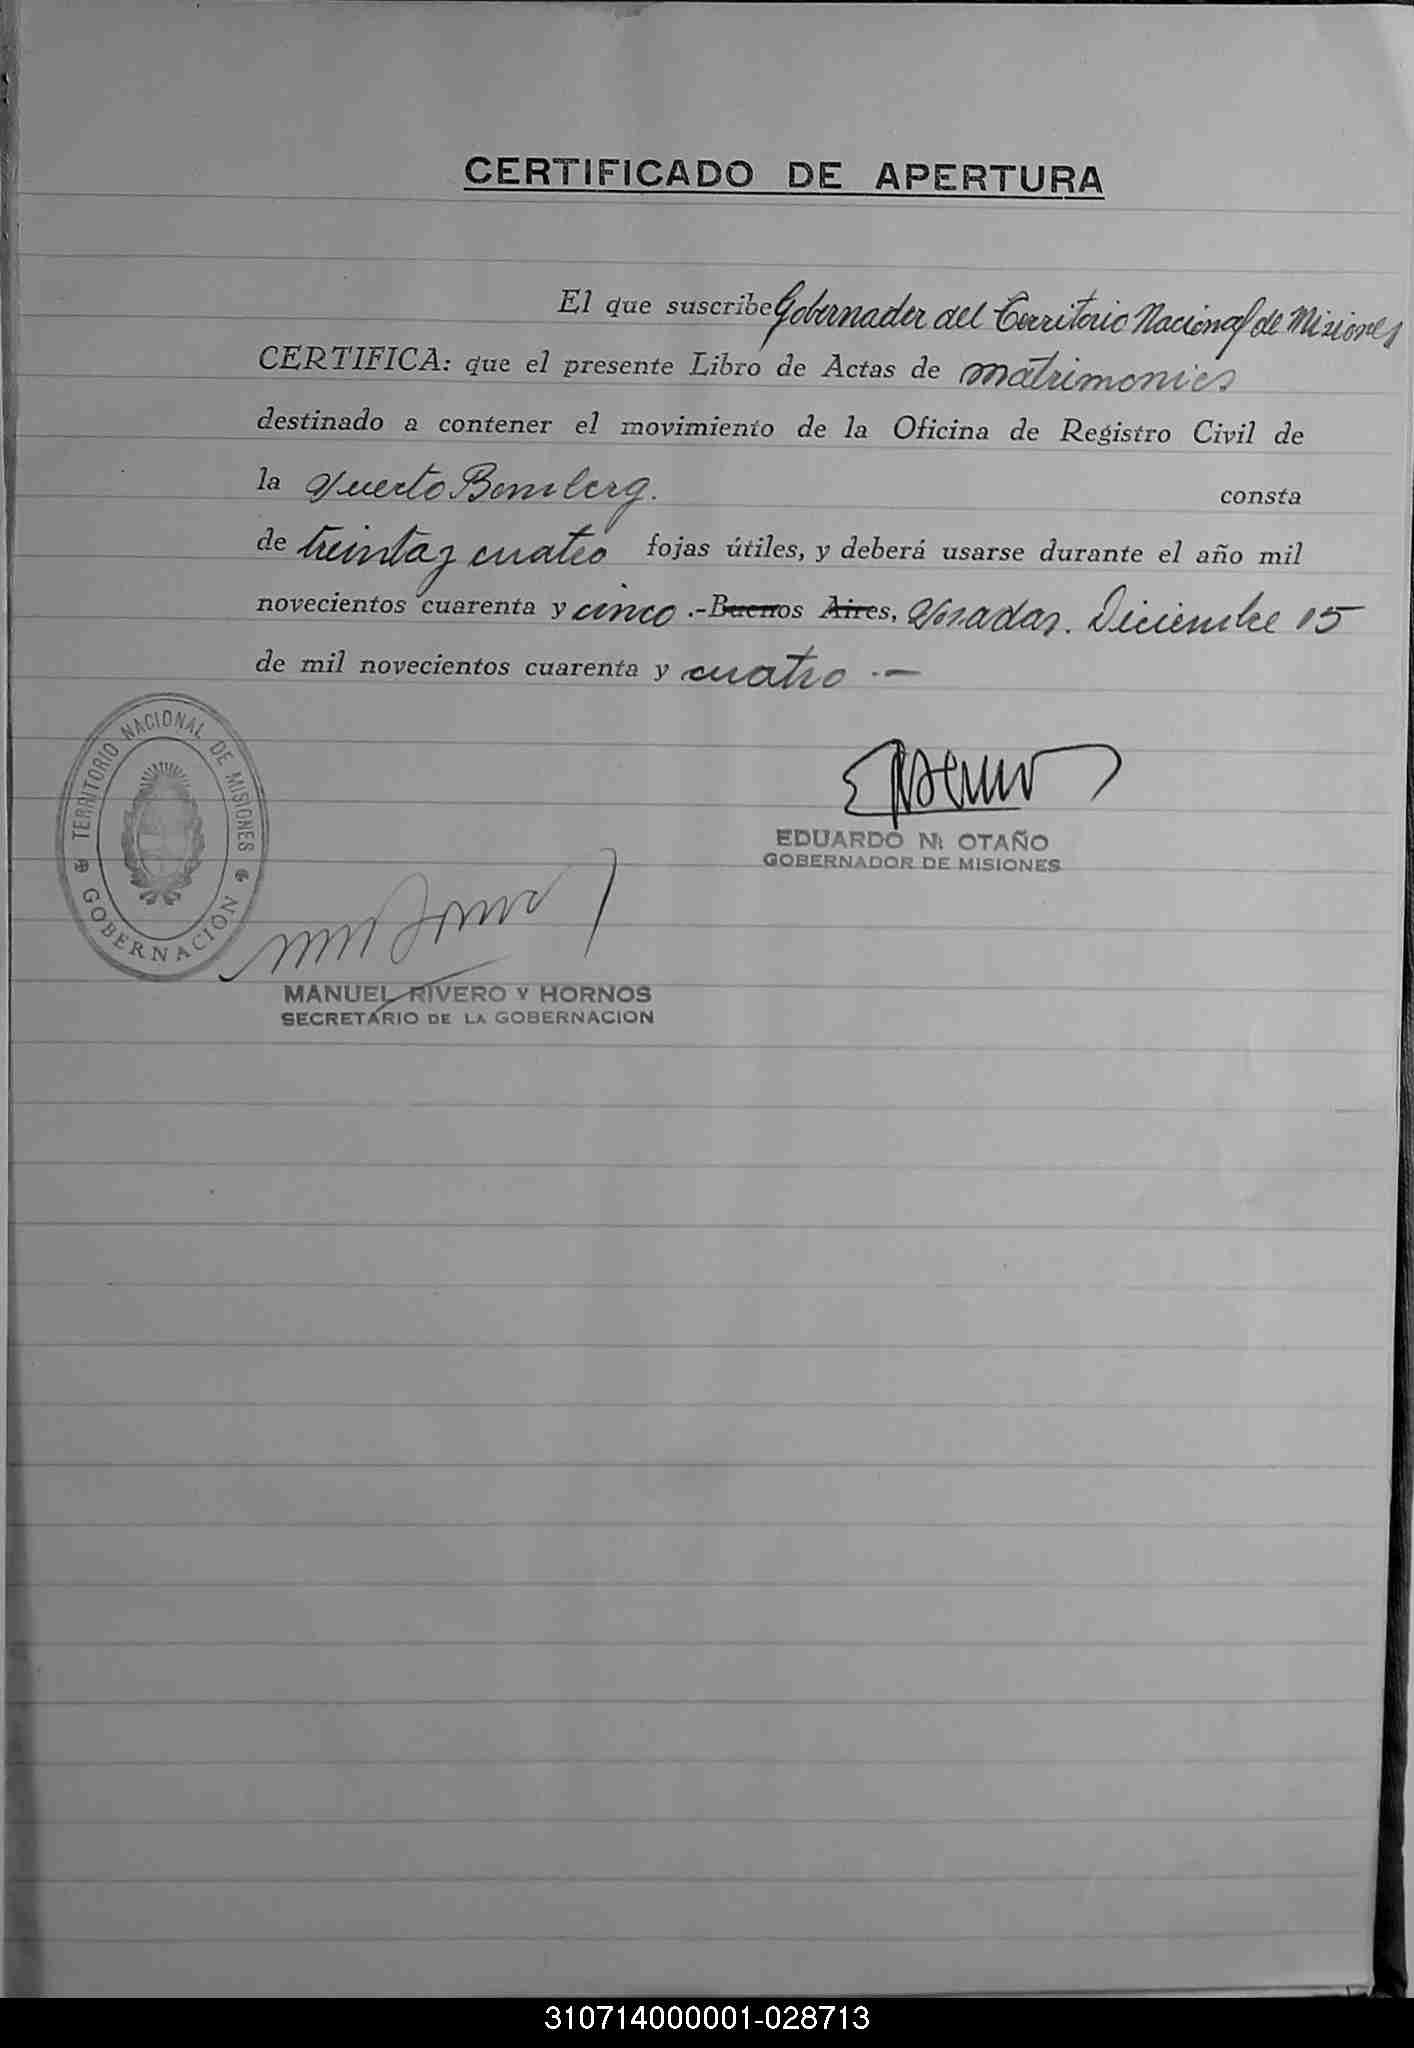 CERTIFICADO DE APERTURA
El que suscribe Gobernador del Territorio Nacional de Misiones
CERTIFICA: que el presente Libro de Actas de matrimonios
destinado a contener el movimiento de la Oficina de Registro Civil de
la Puerto Bemberg. consta
de treinta y cuatro fojas útiles, y deberá usarse durante el año mil
novecientos cuarenta y cinco .-Buenos Aires, Posadas. Diciembre 15
de mil novecientos cuarenta y cuatro .-
TERRITORIO NACIONAL DE MISIONES
GOBERNACIÓN
EDUARDO N. OTAÑO
GOBERNADOR DE MISIONES
MANUEL RIVERO Y HORNOS
SECRETARIO DE LA GOBERNACION
310714000001-028713